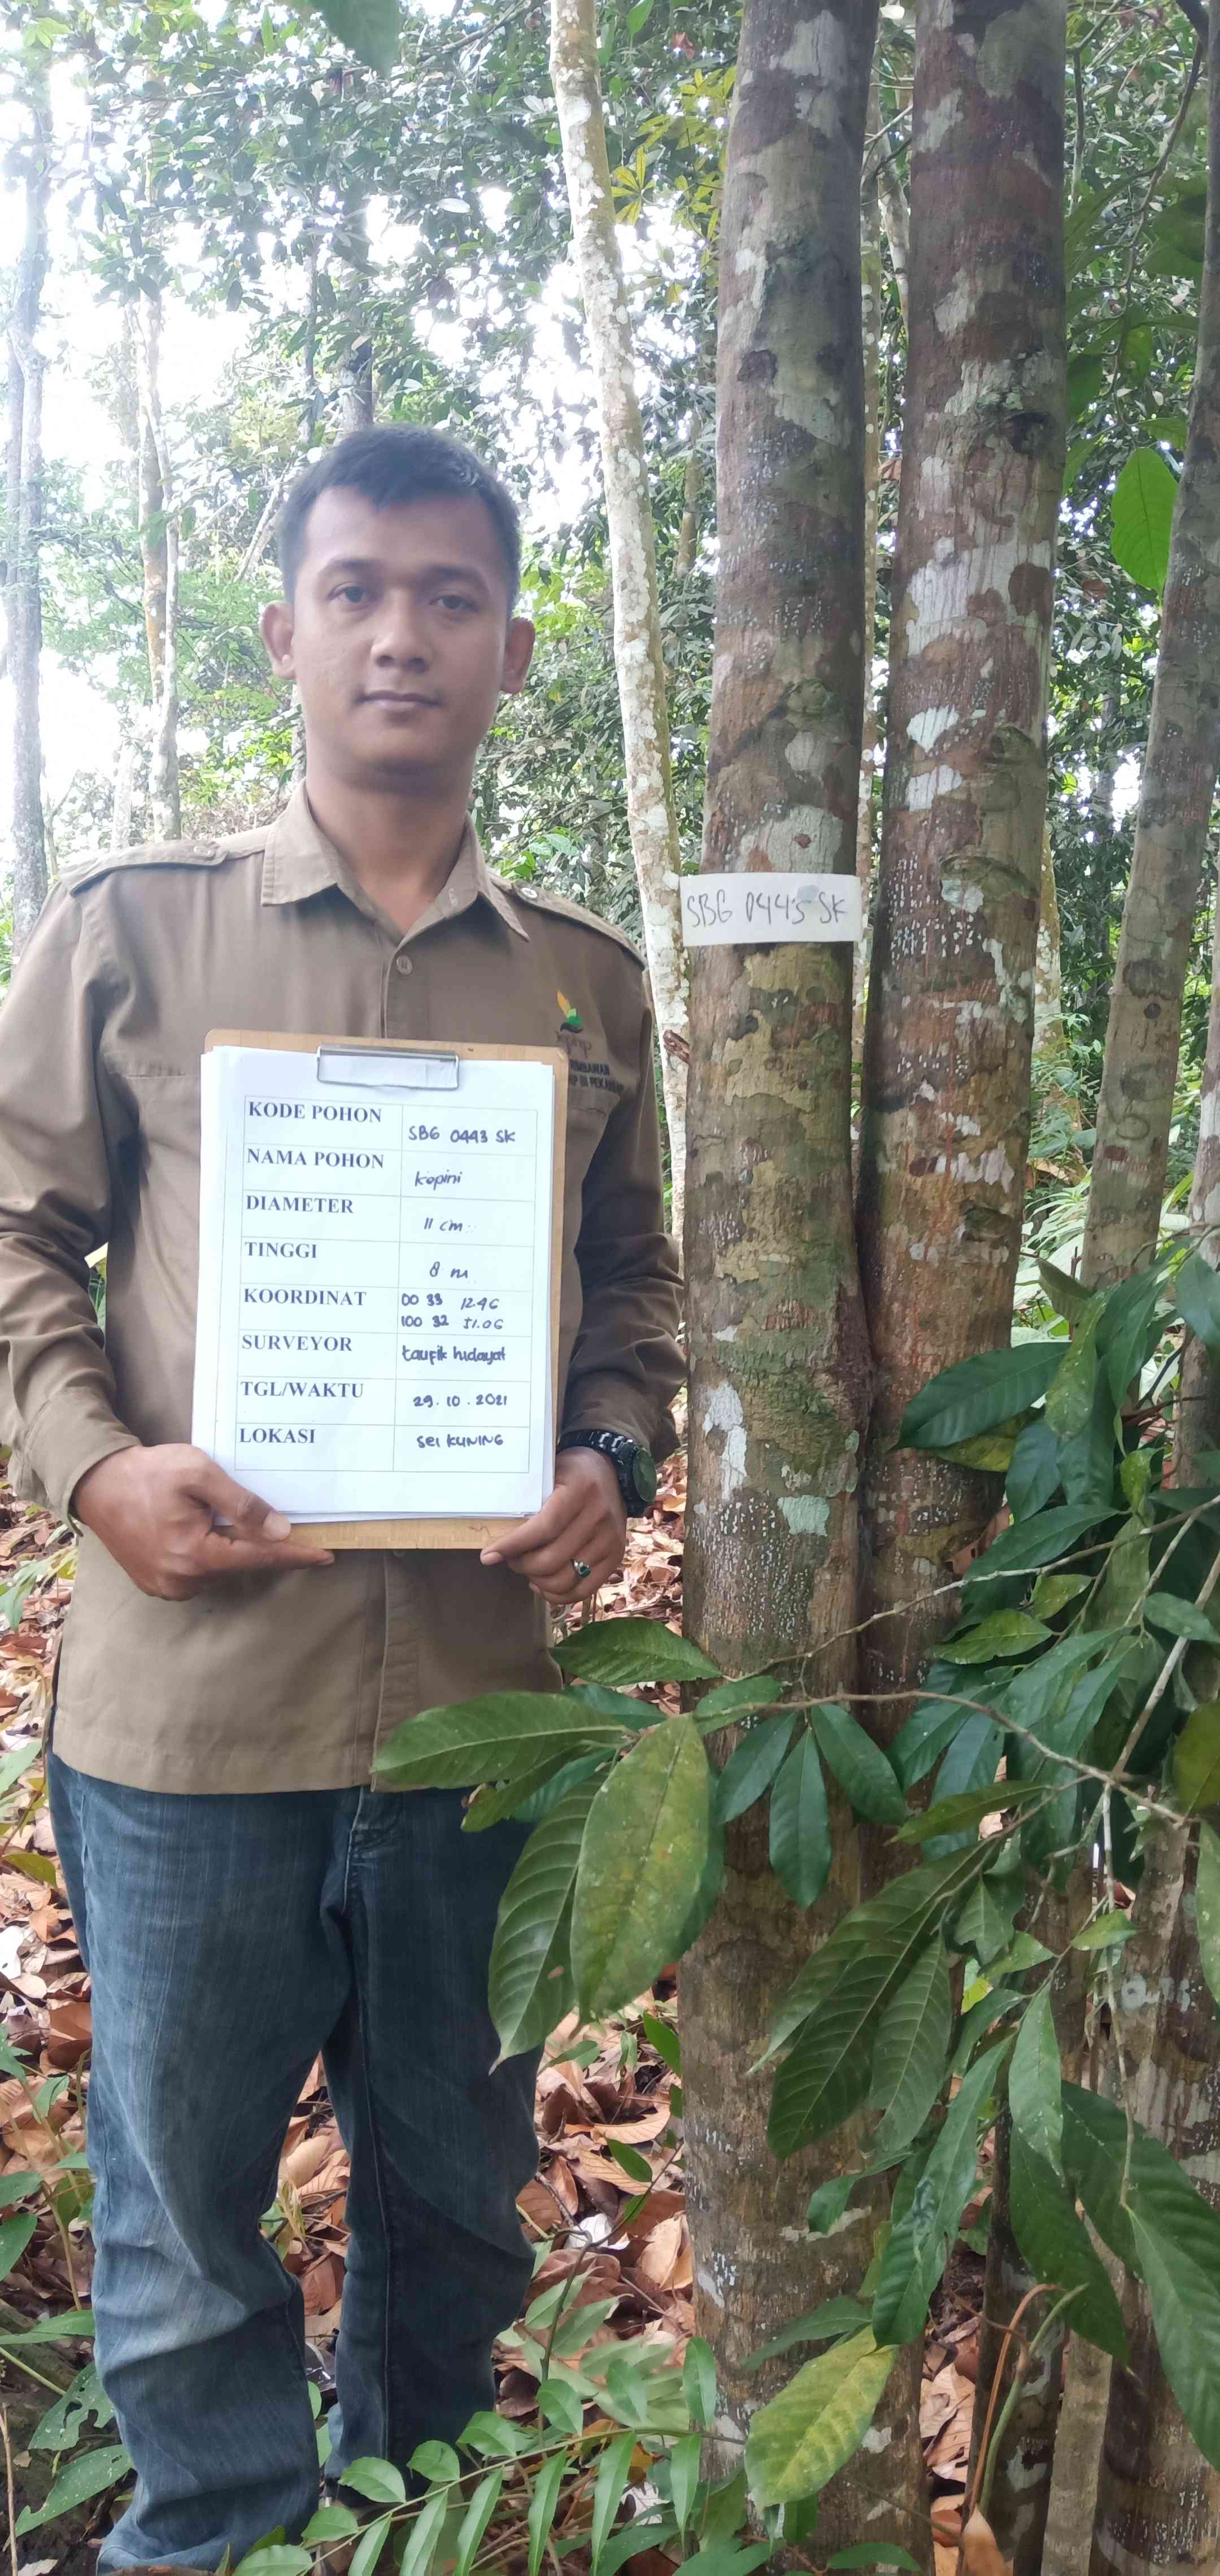 SBG 0443 SK
KODE POHON SBG 0443 SK
NAMA POHON kopini
DIAMETER 11 cm
TINGGI 8 m
KOORDINAT 00 33 12.96
100 32 51.06
SURVEYOR taufik hidayat
TGL/WAKTU 29.10.2021
LOKASI SEI KUNING